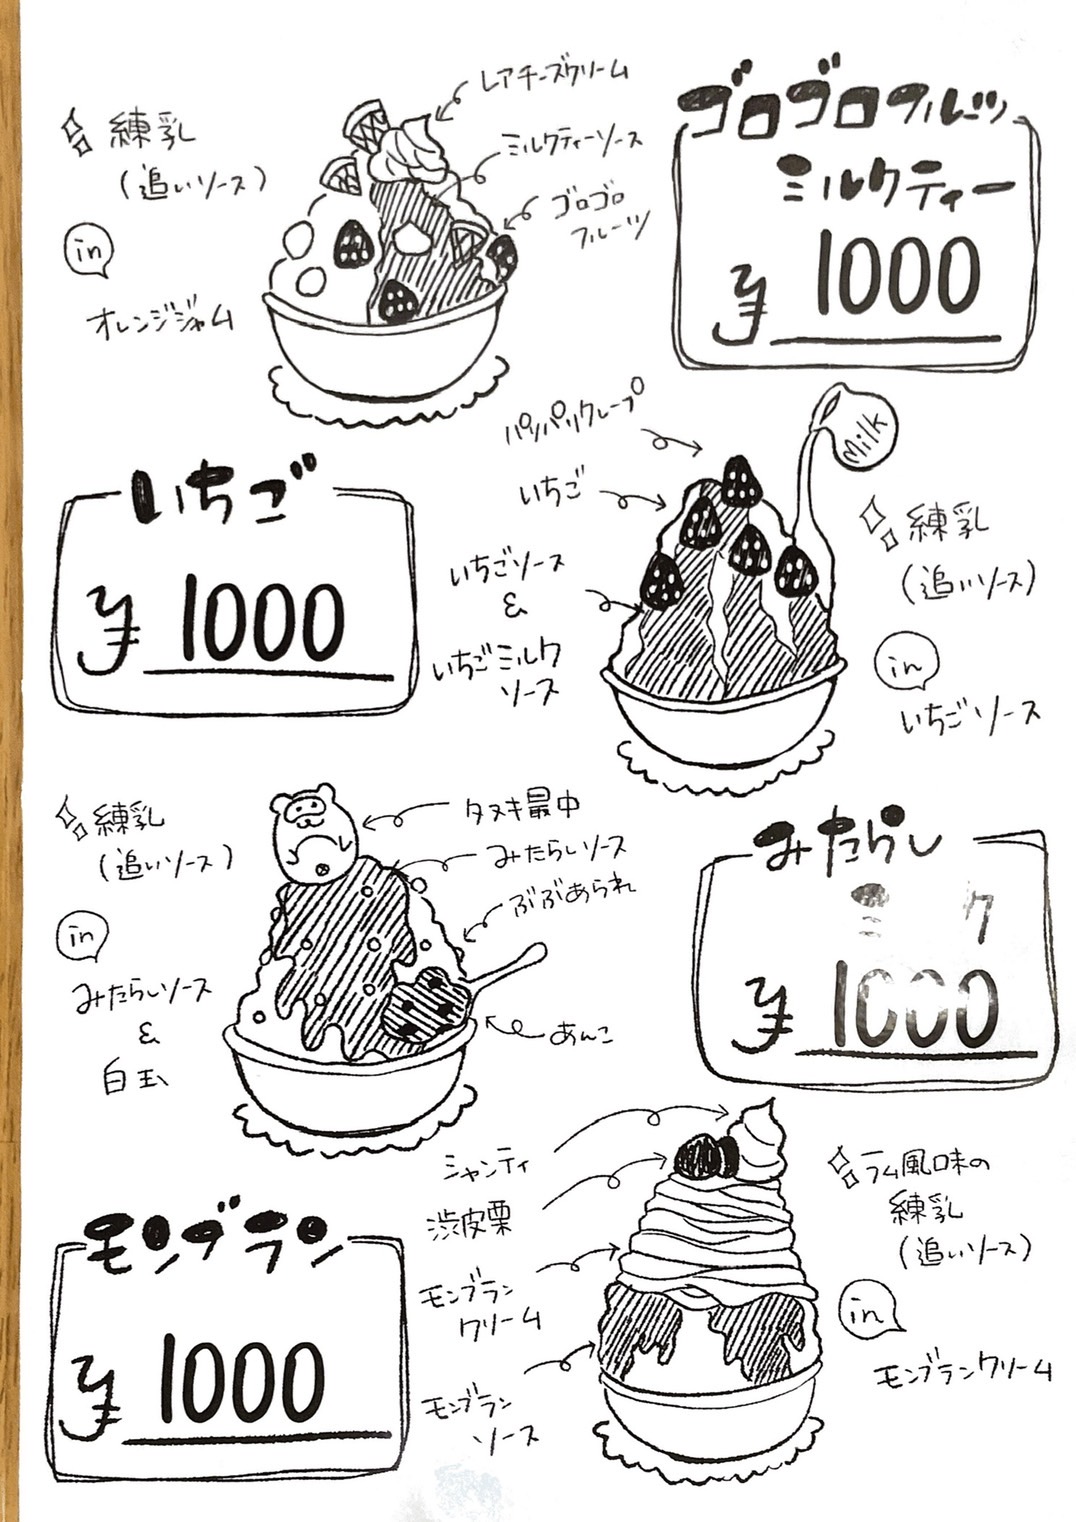 ゴロゴロフルーツ
ミルクティー
¥1000
レアチーズクリーム
ミルクティーソース
ゴロゴロ
フルーツ
練乳
(追いソース)
in
オレンジジャム
いちご
¥1000
パリパリクレープ
いちご
いちごソース
&
いちごミルク
ソース
Milk
練乳
(追いソース)
in
いちごソース
みたらし
¥1000
タヌキ最中
みたらしソース
ぶぶあられ
あんこ
練乳
(追いソース)
in
みたらしソース
&
白玉
モンブラン
¥1000
シャンティ
渋皮栗
モンブラン
クリーム
モンブラン
ソース
ラム風味の
練乳
(追いソース)
in
モンブランクリーム